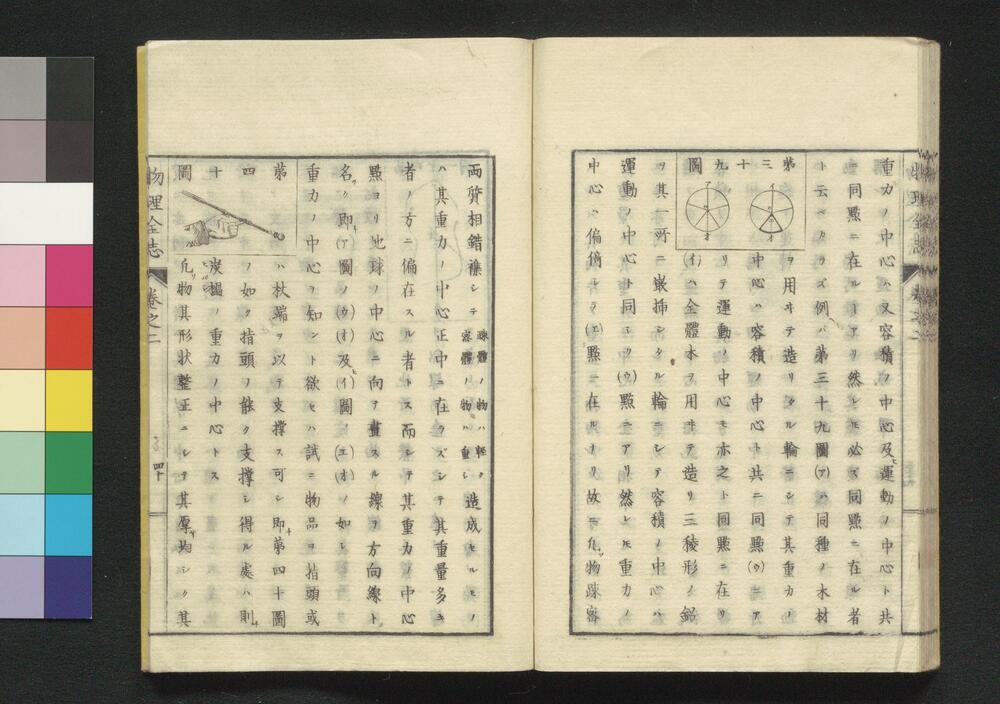 重力ノ中心ハ又容積ノ中心及ヒ運動ノ中心ト共
ニ同㸃ニ在ルヿアリ然レ𪜈必ズ同㸃ニ在ル者
ト云ベカラズ例バ第三十九圖(ア)ハ同種ノ木材
第三十九圖
ヲ用ヰテ造リタル輪ニシテ其重力ノ
中心ハ容積ノ中心ト共ニ同㸃(ウ)ニア
リテ運動ノ中心モ亦之ト同㸃ニ在リ
(イ)ハ全體木ヲ用ヰテ造リ三稜形ノ鉛
ヲ其一所ニ嵌挿シタル輪ニシテ容積ノ中心ハ
運動ノ中心ト同シク(ウ)㸃ニアリ然レ𪜈重力ノ
中心ハ偏倚シテ(エ)㸃ニ在ルナリ故ニ凡ソ物疎密
物理全志
卷之二
両質相錯襍シテ
疎體ノ物ハ輕ク
密體ノ物ハ重シ
造成セルモノ
ハ其重力ノ中心正中ニ在ラズシテ其重量多キ
者ノ方ニ偏在スル者トス而シテ其重力ノ中心
㸃ヨリ地球ノ中心ニ向テ畫スル線ヲ方向線ト
名ク即チ(ア)圖ノ(ウ)(オ)及ヒ(イ)圖ノ(エ)(オ)ノ如シ
重力ノ中心ヲ知ント欲セハ試ニ物品ヲ指頭或
第四十圖
ハ杖端ヲ以テ支撐ス可シ即チ第四十圖
ノ如ク指頭ノ能ク支撐シ得ル處ハ則チ
炭搨ノ重力ノ中心トス
凡ソ物其形狀整正ニシテ其厚サ均シク其
物理全志
卷之二
四十